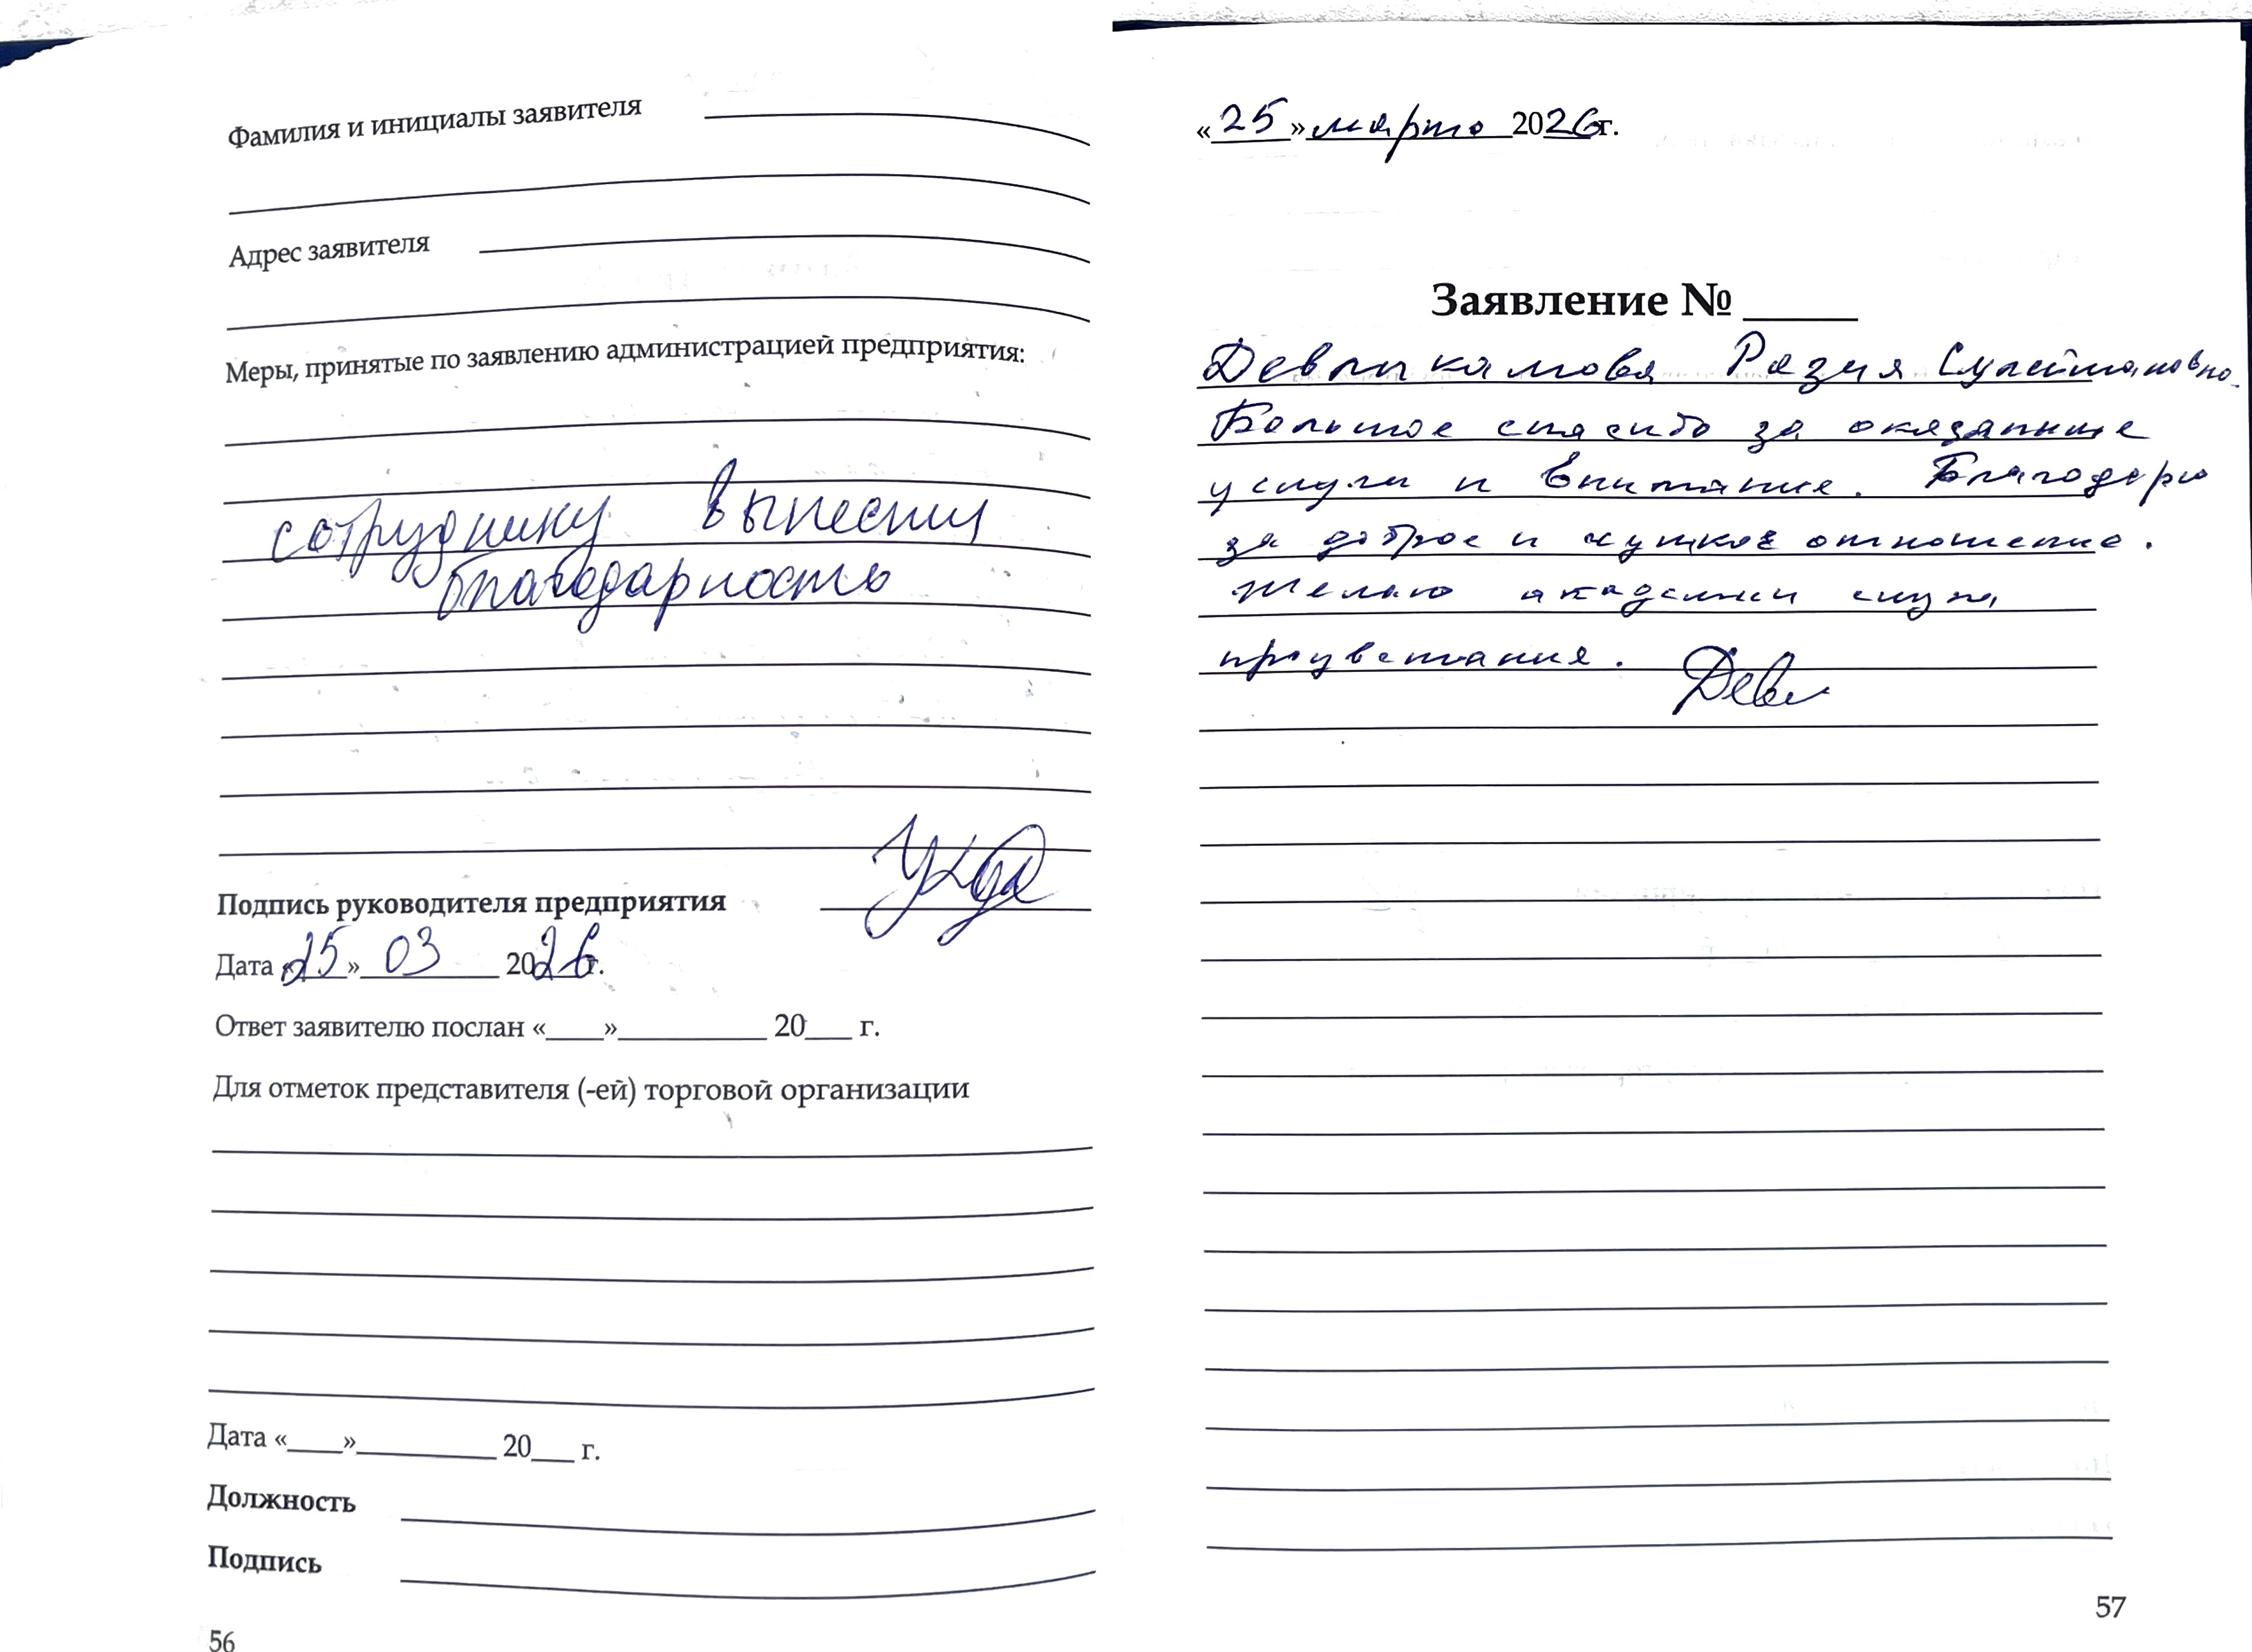 Фамилия и инициалы заявителя
Адрес заявителя
Меры, принятые по заявлению администрацией предприятия:
сотруднику вынесли
благодарность
Подпись руководителя предприятия
Дата «25» 03 2026г.
Ответ заявителю послан «____»__________ 20___ г.
Для отметок представителя (-ей) торговой организации
Дата «____»__________ 20___ г.
Должность
Подпись
56
«25» марта 2026г.
Заявление № _____
Девликамова Разия Сулеймановна.
Большое спасибо за оказанные
услуги и внимание. Благодарю
за доброе и чуткое отношение.
Желаю академии слуха
процветания. Девл
57